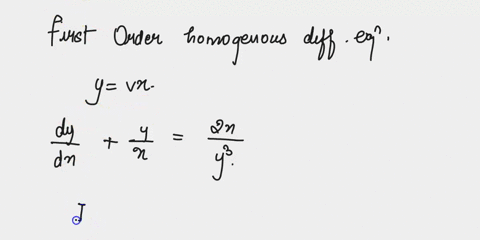 first Order homogenous diff. eqn.
y = vx.
dy/dx + y/x = 2x/y³.
I